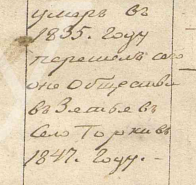 умеръ въ
1835. Году
перешелъ сего
оно Общества
въ Зятья въ
Село Торки въ
1847. Году. –